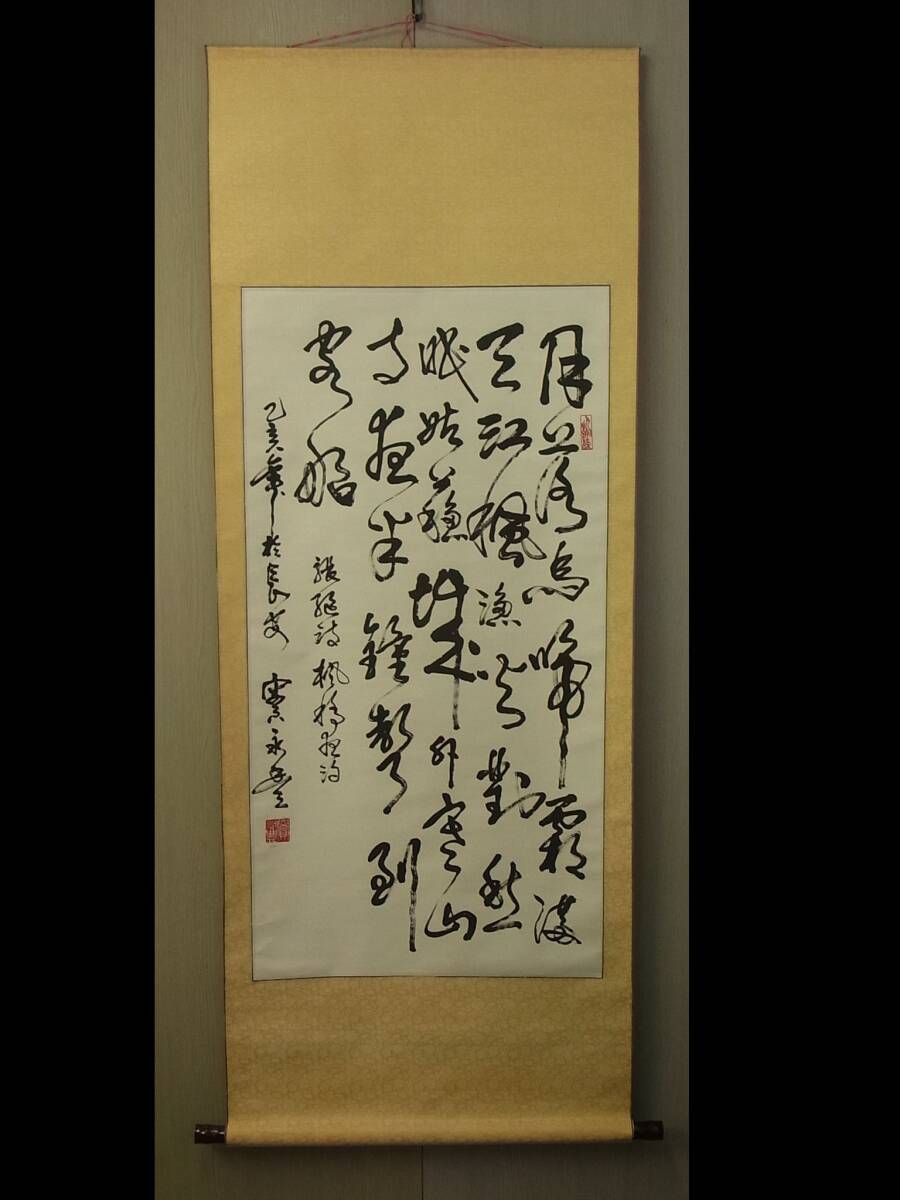 月落烏啼霜滿
天江楓漁火對愁
眠姑蘇城外寒山
寺夜半鐘聲到
客船
張繼詩楓橋夜泊
乙亥年於長安 永